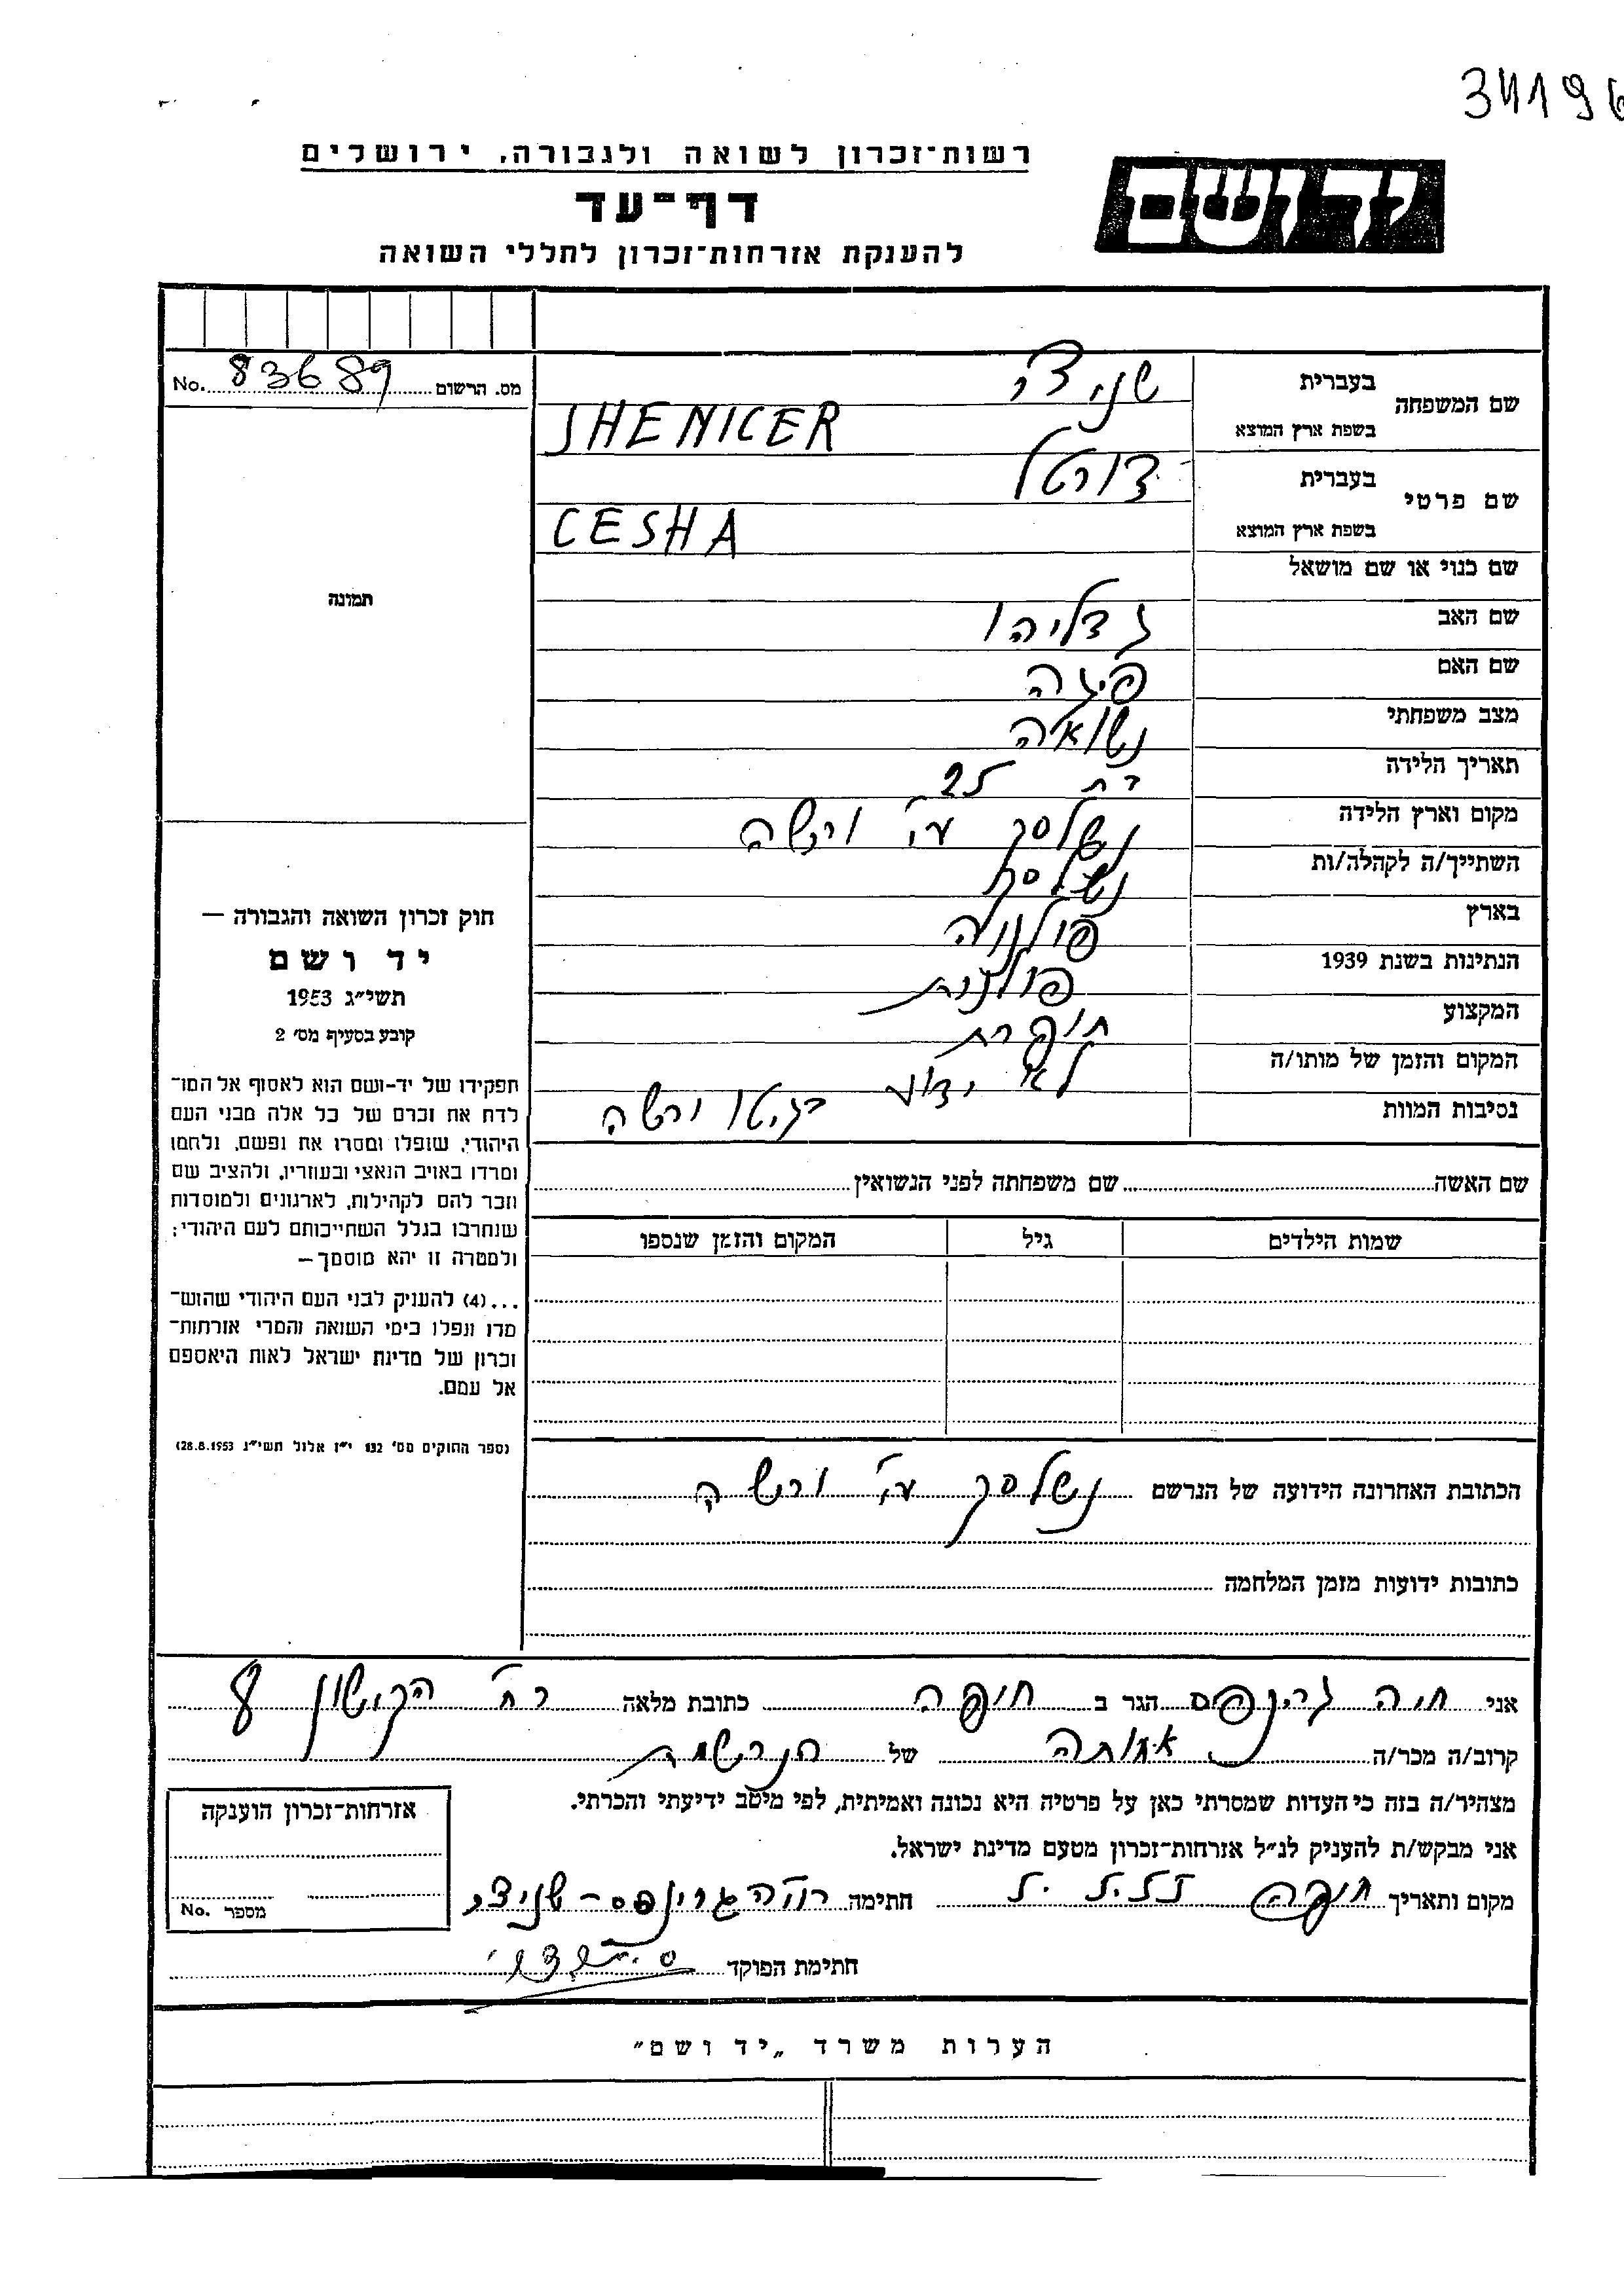 34196
רשות־זכרון לשואה ולגבורה, ירושלים
יד ושם
דף־עד
להענקת אזרחות־זכרון לחללי השואה
מס. הרשום 83689 No.
שם המשפחה
בעברית שניצר
בשפת ארץ המוצא SHENICER
שם פרטי
בעברית
בשפת ארץ המוצא CESHA
שם כנוי או שם מושאל
שם האב גדליהו
שם האם פיגה
מצב משפחתי נשואה
תאריך הלידה בת 25
מקום וארץ הלידה נשלסק ע"י ורשה
השתייך/ה לקהלה/ות נשלסק
בארץ פולניה
הנתינות בשנת 1939 פולנית
המקצוע תופרת
המקום והזמן של מותו/ה לא ידוע
נסיבות המוות בגיטו ורשה
תמונה
חוק זכרון השואה והגבורה —
יד ושם
תשי״ג 1953
קובע בסעיף מס׳ 2
תפקידו של יד-ושם הוא לאסוף אל המו־
לדת את זכרם של כל אלה מבני העם
היהודי, שנפלו ומסרו את נפשם, נלחמו
ומרדו באויב הנאצי ובעוזריו, ולהציב שם
וזכר להם לקהילות, לארגונים ולמוסדות
שנחרבו בגלל השתייכותם לעם היהודי;
ולמטרה זו יהא מוסמך—
...(4) להעניק לבני העם היהודי שהוש־
מדו ונפלו בימי השואה והמרי אזרחות־
זכרון של מדינת ישראל לאות היאספם
אל עמם.
(ספר החוקים מס׳ 132 י״ז אלול תשי״ג 28.8.1953)
שם האשה שם משפחתה לפני הנשואין
שמות הילדים גיל המקום והזמן שנספו
הכתובת האחרונה הידועה של הנרשם נשלסק ע"י ורשה
כתובות ידועות מזמן המלחמה
אני חיה גרינפס הגר ב חיפה כתובת מלאה רח' הקישון 8
קרוב/ה מכר/ה אחותה של הנרשמת
מצהיר/ה בזה כי העדות שמסרתי כאן על פרטיה היא נכונה ואמיתית, לפי מיטב ידיעתי והכרתי.
אני מבקש/ת להעניק לנ״ל אזרחות־זכרון מטעם מדינת ישראל.
מקום ותאריך חיפה חתימה חיה גרינפס - שניצר
חתימת הפוקד
אזרחות־זכרון הוענקה
מספר No.
הערות משרד „יד ושם״